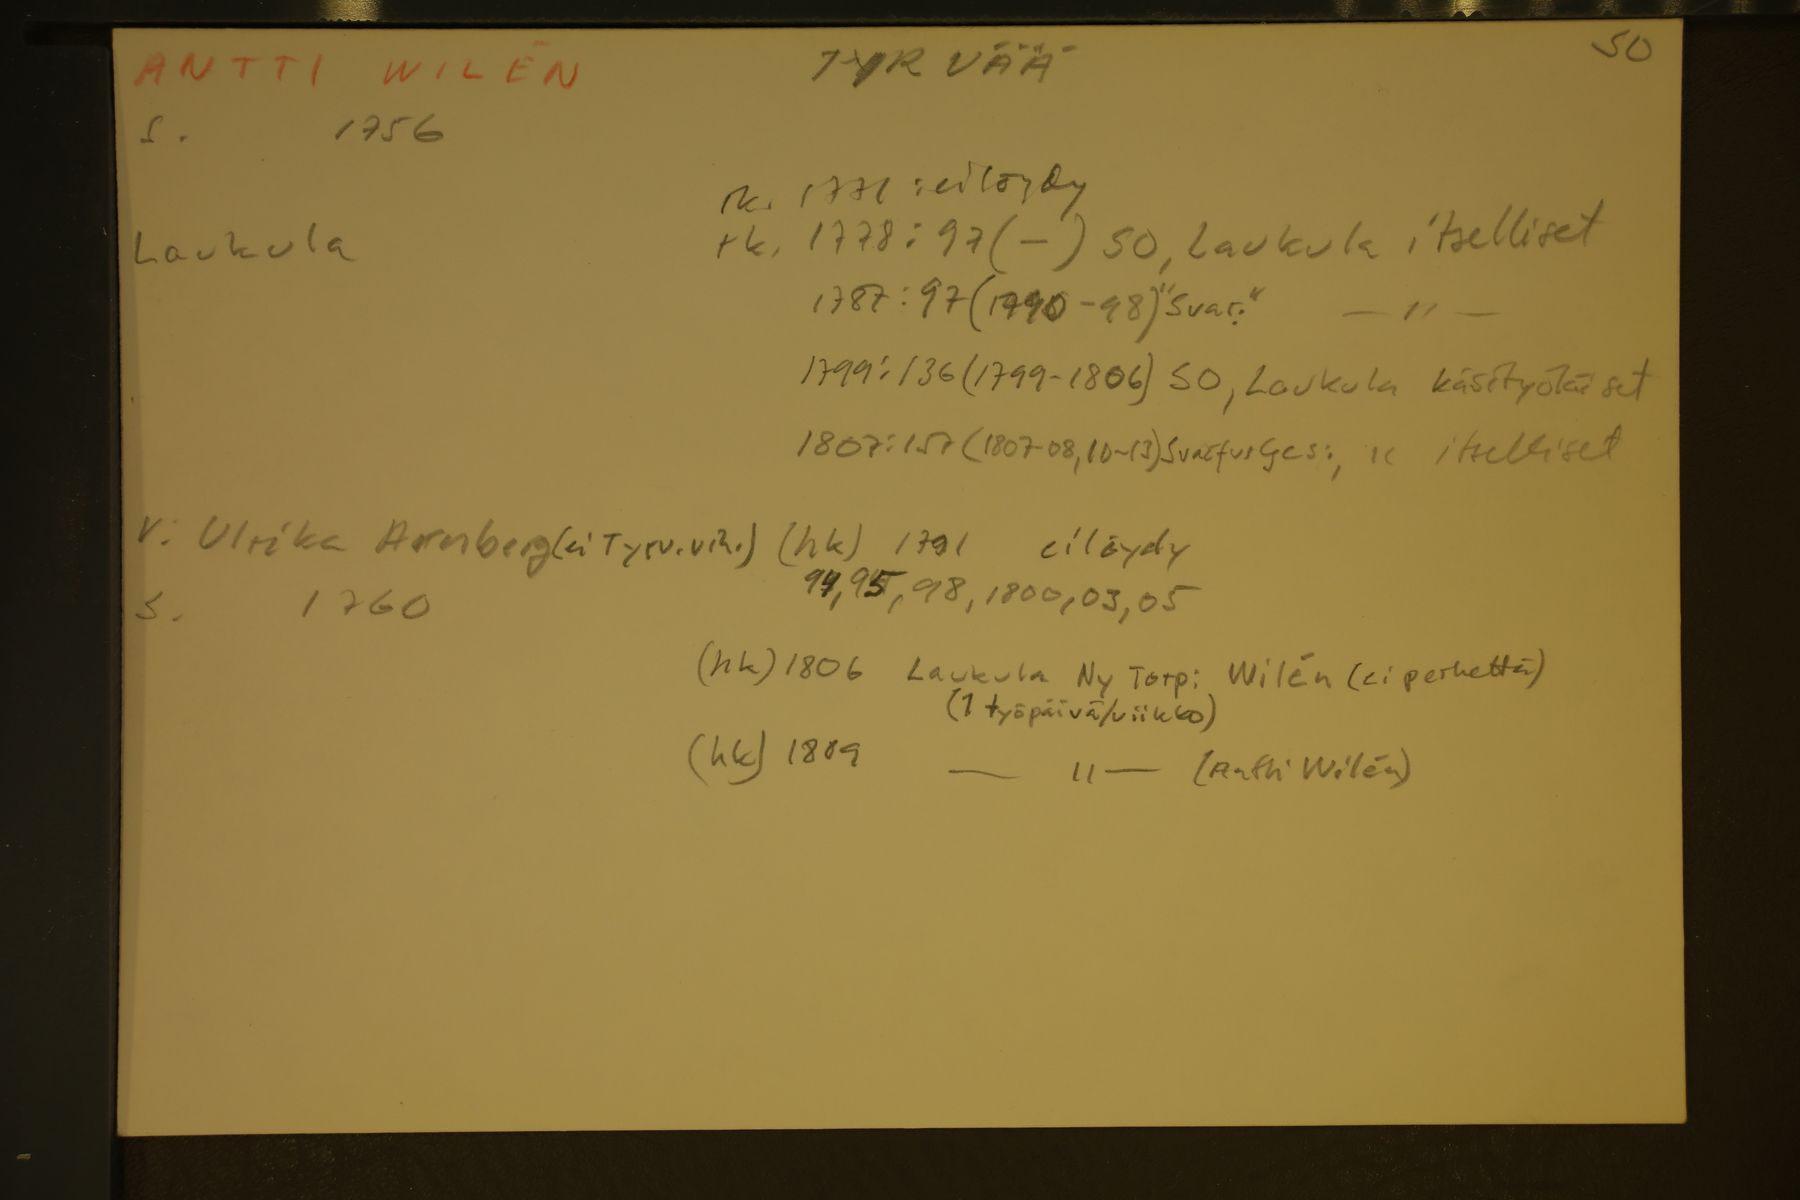 ANTTI WILÉN TYRVÄÄ SO
S. 1756
rk. 1771 : ei löydy
Laukula rk. 1778 : 97 (-) SO, Laukula itselliset
1787 : 97 (1790-98) "Svar:" — " —
1799 : 136 (1799-1806) SO, Laukula käsityöläiset
1807 : 157 (1807-08, 10-13) Svarfvar Ges:, " itselliset
V: Ulrika Arenberg (ei Tyrv. vih.) (hk) 1791 ei löydy
94, 95, 98, 1800, 03, 05
S. 1760
(hk) 1806 Laukula Ny Torp: Wilén (ei perhettä)
(1 työpäivä/viikko)
(hk) 1809 — " — (Antti Wilén)